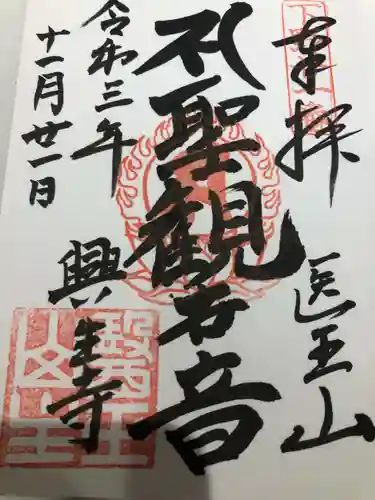 奉拝
医王山
礼聖観世音
令和三年
興生寺
十一月廿一日